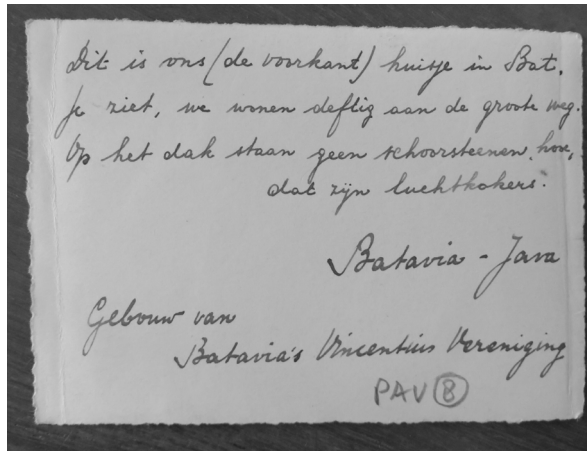 Dit is ons (de voorkant) huisje in Bat.
Je ziet, we wonen deftig aan de groote weg.
Op het dak staan geen schoorsteenen, hoor,
dat zijn luchtkokers.
Batavia - Java
Gebouw van
Batavia's Vincentius Vereniging
PAV 8